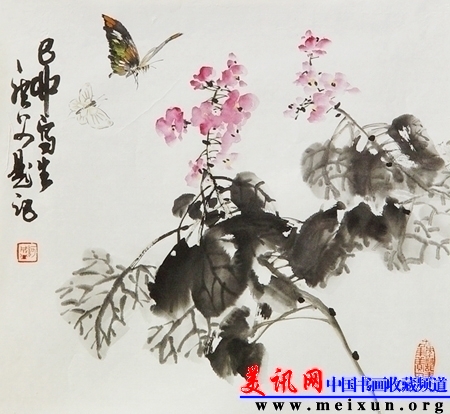 己卯寫生
題記
美讯网 中国书画收藏频道
www.meixun.org